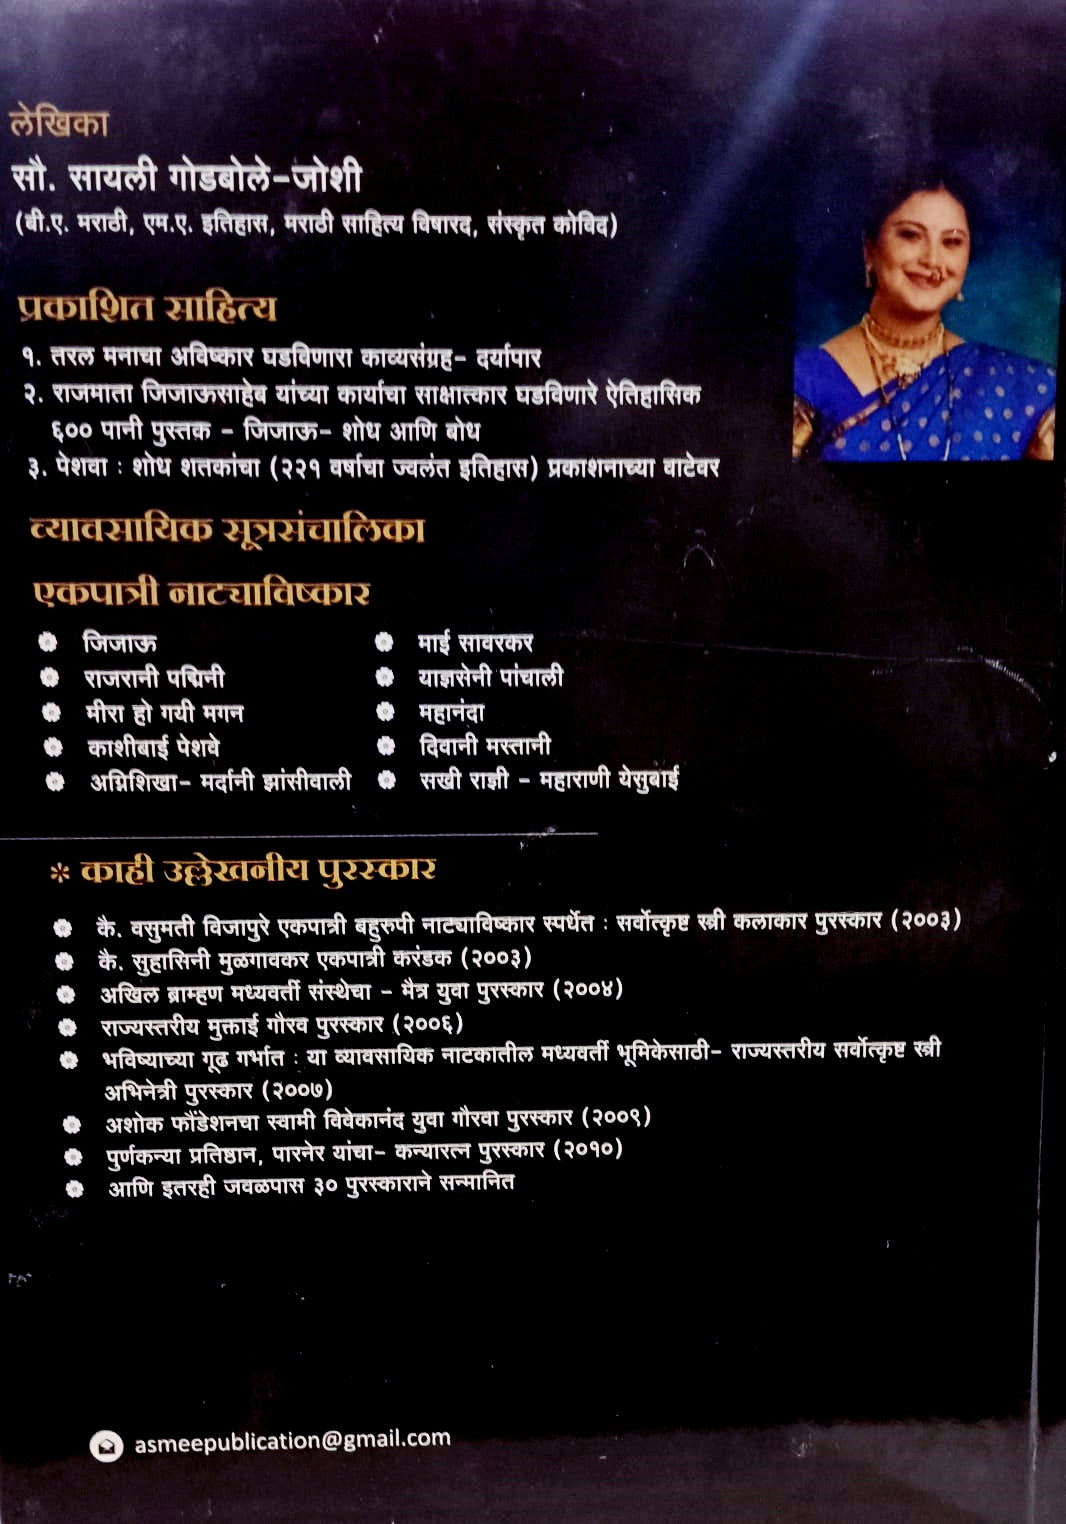 लेखिका
सौ. सायली गोडबोले-जोशी
(बी.ए. मराठी, एम.ए. इतिहास, मराठी साहित्य विषारद, संस्कृत कोविद)
प्रकाशित साहित्य
१. तरल मनाचा अविष्कार घडविणारा काव्यसंग्रह- दर्यापार
२. राजमाता जिजाऊसाहेब यांच्या कार्याचा साक्षात्कार घडविणारे ऐतिहासिक
६०० पानी पुस्तक - जिजाऊ- शोध आणि बोध
३. पेशवा : शोध शतकांचा (२२१ वर्षाचा ज्वलंत इतिहास) प्रकाशनाच्या वाटेवर
व्यावसायिक सूत्रसंचालिका
एकपात्री नाट्याविष्कार
जिजाऊ
राजरानी पद्मिनी
मीरा हो गयी मगन
काशीबाई पेशवे
अग्निशिखा- मर्दानी झांसीवाली
माई सावरकर
याज्ञसेनी पांचाली
महानंदा
दिवानी मस्तानी
सखी राज्ञी - महाराणी येसुबाई
* काही उल्लेखनीय पुरस्कार
कै. वसुमती विजापुरे एकपात्री बहुरुपी नाट्याविष्कार स्पर्धेत : सर्वोत्कृष्ट स्त्री कलाकार पुरस्कार (२००३)
कै. सुहासिनी मुळगावकर एकपात्री करंडक (२००३)
अखिल ब्राम्हण मध्यवर्ती संस्थेचा - मैत्र युवा पुरस्कार (२००४)
राज्यस्तरीय मुक्ताई गौरव पुरस्कार (२००६)
भविष्याच्या गूढ गर्भात : या व्यावसायिक नाटकातील मध्यवर्ती भूमिकेसाठी- राज्यस्तरीय सर्वोत्कृष्ट स्त्री
अभिनेत्री पुरस्कार (२००७)
अशोक फौंडेशनचा स्वामी विवेकानंद युवा गौरवा पुरस्कार (२००९)
पुर्णकन्या प्रतिष्ठान, पारनेर यांचा- कन्यारत्न पुरस्कार (२०१०)
आणि इतरही जवळपास ३० पुरस्काराने सन्मानित
asmeepublication@gmail.com